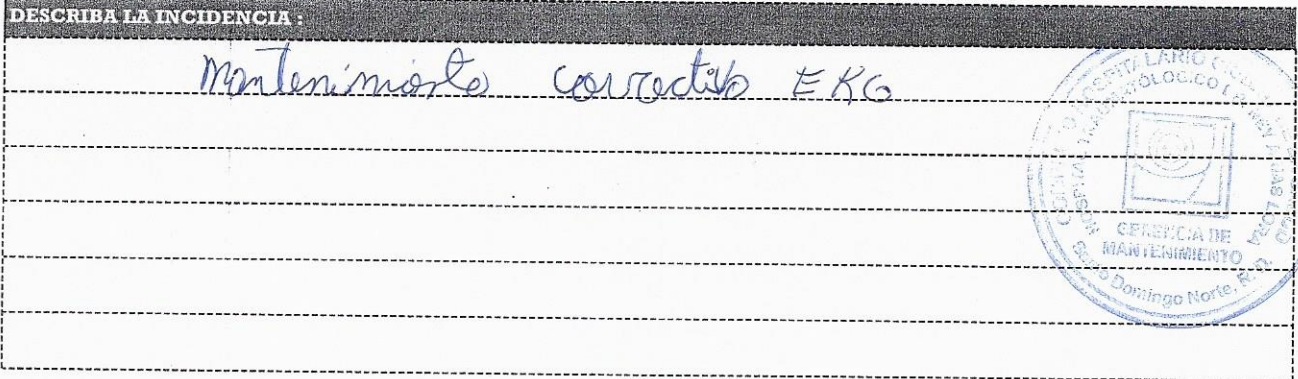 DESCRIBA LA INCIDENCIA :
Mantenimiento correctivo EKG
HOSPITALARIO
HOSPITAL TRAUMATOLOGICO
NEY ARIAS LORA
GERENCIA DE
MANTENIMIENTO
Santo Domingo Norte, R. D.